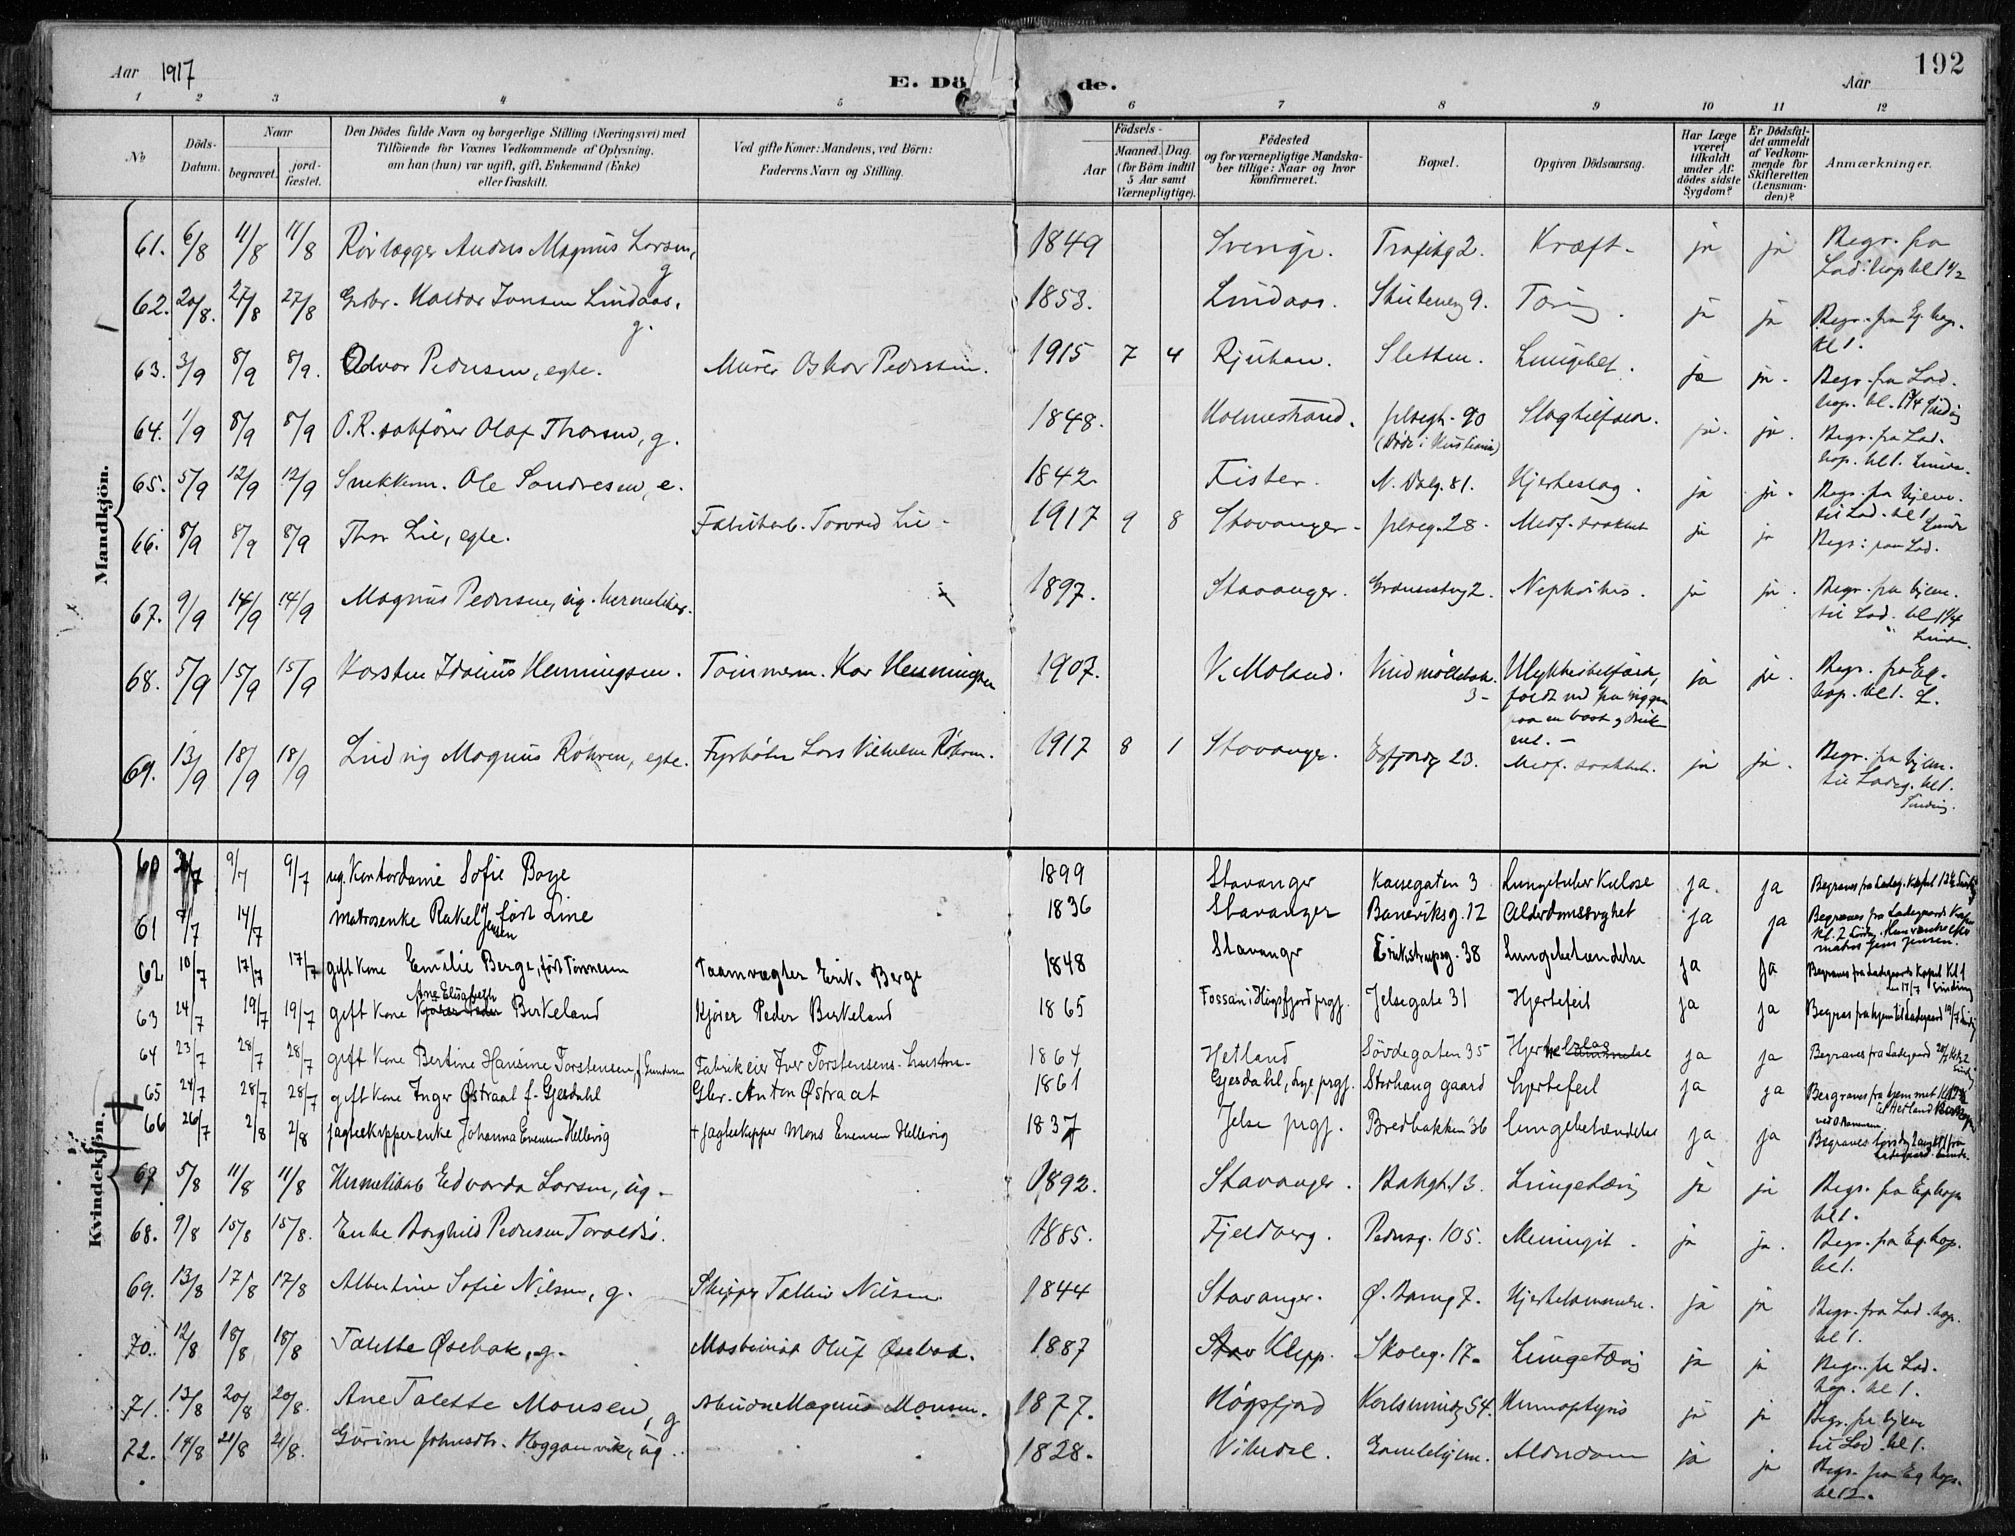 192
Aar 1917
E. Dö de.
Aar
1 2 3 4 5 6 7 8 9 10 11 12
No
Döds-Datum.
Naar begravet. jord-fæstet.
Den Dödes fulde Navn og borgerlige Stilling (Næringsvei) med
Tilföiende for Voxnes Vedkommende af Oplysning,
om han (hun) var ugift, gift, Enkemand (Enke)
eller fraskilt.
Ved gifte Koner: Mandens, ved Börn:
Faderens Navn og Stilling.
Födsels-
Aar Maaned. Dag.
(for Börn indtil
5 Aar samt
Værnepligtige).
Födested
og for værnepligtige Mandska-
ber tillige: Naar og hvor
konfirmeret.
Bopæl.
Opgiven Dödsaarsag.
Har Læge
været
tilkaldt
under Af-
dödes sidste
Sygdom?
Er Dödsfal-
det anmeldt
af Vedkom-
mende for
Skifteretten
(Lensman-
den)?
Anmærkninger.
Mandkjön.
61. 6/8 11/8 11/8 Rörlægger Anders Magnus Larsen, g 1849 Sverige. Trafikg 2. Kræft. ja ja Begr. fra Lad. kap kl 1 1/2
62. 20/8. 27/8 27/8 Gbr. Halvor Jonsen Lindaas, g. 1853. Lindaas. 9. Tæring. ja ja Begr. fra Eg. kap. kl 1.
63. 3/9 8/9 8/9. Odvar Pedersen, egte. Murer Oskar Pedersen. 1915 7 4 Rjukan. Sletten. Lungebet. ja ja. Begr. fra Lad. kap. kl. 1 1/4 Sinding
64. 1/9 8/9 8/9 O.R. sakfører Olaf Thorsen, g. 1848. Holmestrand. 90 (Døde i Kristiania) Slagtilfælde. ja. ja. Begr. fra Lad. kap. kl 1. Linde.
65. 5/9 12/9 12/9 Snekkerm. Ole Sondresen, e. 1842. Fister. N. Dalg. 81. Hjerteslag. ja ja. Begr. fra hjem. til Lad. kl 1 Linde
66. 8/9 8/9 8/9 Thor Lie, egte. Fabrikarb. Torvald Lie. 1917 9 8 Stavanger. 28. Medf. svakhet ja ja Begr: paa Lad.
67. 9/9 14/9 14/9 Magnus Pedersen, ug. hermetikar. 1897. Stavanger. 2. Nephritis. ja ja. Begr. fra hjem. til Lad. kl 1 1/4 Linde.
68. 5/9 15/9 15/9 Karsten Henningsen. Tømmerm. Kar Henningsen 1907. V. Moland. 3. Ulykkestilfælde, faldt ned fra riggen paa en baat ja ja. Begr. fra Eg. kap. kl 1. L.
69. 13/9 18/9 18/9 Ludvig Magnus Røkren, egte. Fyrbøter Lars Vilhelm 1917 8 1 Stavanger. 23. Medf. svakhet. ja ja. Begr. fra hjem. til Ladeg. kl 1. Sinding.
Kvindekjön.
60 9/7 9/7 ug. Kontordame Sofie Boye 1899 Stavanger Kassegaten 3 Lungetuberkulose ja. ja
61 7/7 14/7 Matrosenke Rakel Jensen født Line 1836 Stavanger Baneviksg. 12 Alderdomssvaghet ja ja
62 10/7 17/7 17/7 gift kone Emilie Berge, født Tønnesen Taarnvægter Erik Berge 1848 Stavanger Erikstrupsg. 38 Lungebetændelse ja ja Begraves fra Ladegaards Kapel Kl 1 den 17/7 Sinding
63 24/7 19/7 19/7 gift kone Ane Elisabeth Birkeland Kjører Peder Birkeland 1865 Fossan i Høgsfjord prgj. Jelsegate 31 Hjertefeil ja ja Begraves fra hjem til Ladegaard 19/7 Sinding
64 23/7 28/7 28/7 gift kone Bertine Hansine Torstensen f. Gundersen Fabrikeier Iver Torstensens hustru 1864 Hetland Søvdegaten 35 Hjerteslag ja ja Begraves fra Ladegaard 28/7 Kl. 2 Sinding
65 24/7 28/7 28/7 gift kone Inger Østraat f. Gjesdahl Gbr. Anton Østraat 1861 Gjesdahl, Lye prgj. Storhaug gaard hjertefeil ja ja
66 26/7 2/8 2/8 jagteskipperenke Johanna Evensen Hellevig + jagteskipper Mons Evensen Hellevig 1837 Jelse prgj. Bredbakken 36 lungebetændelse ja ja
67 5/8 11/8 11/8 Hermetikarb Edvarda Larsen, ug. 1892. Stavanger. Bakgt. 13. Lungetæring ja ja Begr. fra Eg. kap kl 1.
68. 9/8 15/8 15/8. Enke Borghild Pedersen 1885. Fjeldberg. Pedersg. 105. Meningit. ja ja. Begr. fra Eg. kap. kl 1.
69. 13/8 17/8 17/8 Albertine Sofie Nilsen, g. Skipper Tallev Nilsen 1844 Stavanger. Ø. 7. Hjertelammelse. ja ja Begr. fra Lad. kap. kl 1.
70. 12/8 18/8 18/8 Talette Øsebak, g. Maskinist Oluf Øsebak. 1887 Klepp. Skoleg. 17. Lungetæring ja ja Begr. fra Lad. kap. kl 1.
71. 13/8 20/8 20/8. Ane Talette Monsen, g Magnus Monsen. 1877. Høgsfjord Karlsminneg 54. Hemoptysis ja ja Begr. fra hjem til Lad. kl 1.
72. 14/8 21/8 21/8. Gurine Johnsdtr. Heggansvik, ug. 1828. Vikedal. Gamlehjem. Alderdom ja ja Begr. fra Eg kap. kl 12.